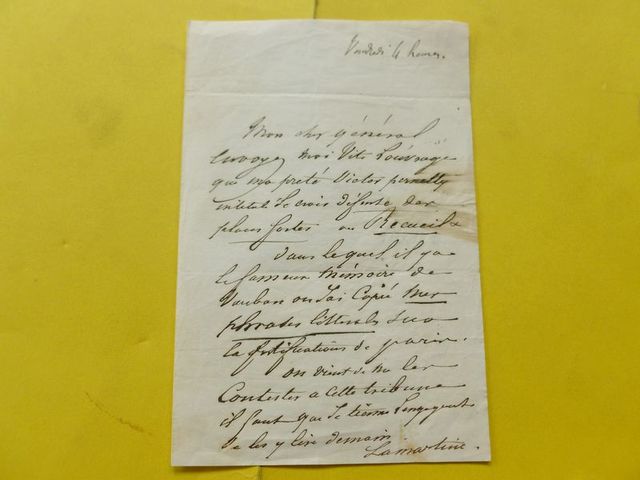 Vendredi 4 heures.
Mon cher général
envoyez moi vite l'ouvrage
que m'a preté Victor
intitulé je crois défense des
places fortes ou Recueil
dans lequel il y a
le fameux Mémoire de
Vauban ou j'ai Copié mes
phrases littérales sur
la fortifications de paris.
on vient de me les
Contester a cette tribune
il faut que je tienne l'engagement
de les y lire demain
Lamartine.